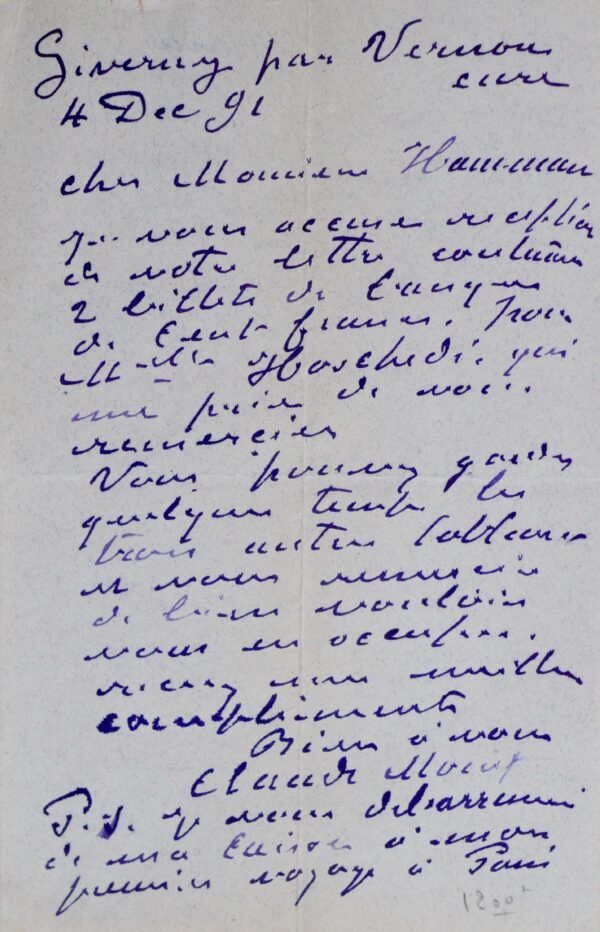 Giverny par Vernon
eure
4 Dec 91
cher Monsieur Hamman
je vous accuse reception
de votre lettre contenant
2 billets de banque
de Cent francs. pour
Melle Hoschedé, qui
me prie de vous
remercier
Vous pouvez garder
quelque temps les
trois autres tableaux
et vous remercie
de bien vouloir
vous en occuper.
recevez mes meilleurs
compliments
Bien à vous
Claude Monet
P.S. je vous debarrasserai
de ma caisse à mon
premier voyage à Paris
1200